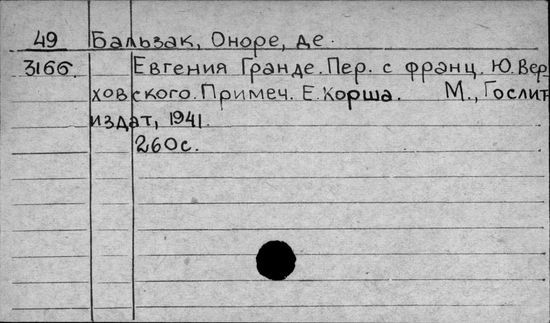 49 Бальзак, Оноре, де.
3166. Евгения Гранде. Пер. с франц. Ю. Вер
ховского. Примеч. Е. Корша. М., Гослит
издат, 1941.
260с.